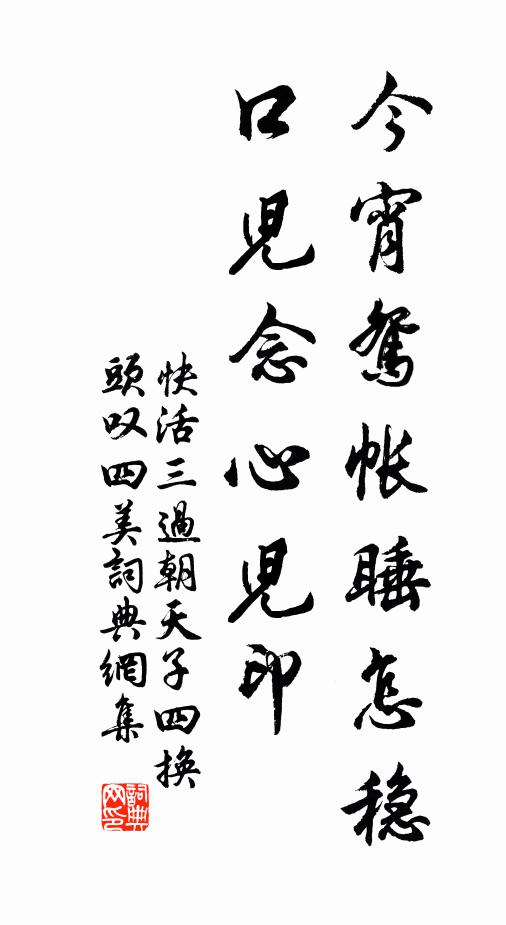 今宵鴛帐睡怎稳
口児念心児印
快活三過朝天子四换
頭叹四美詞典網集
詞典网印